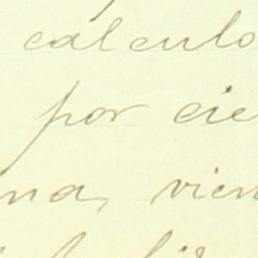 calculo
por cie
na, vien